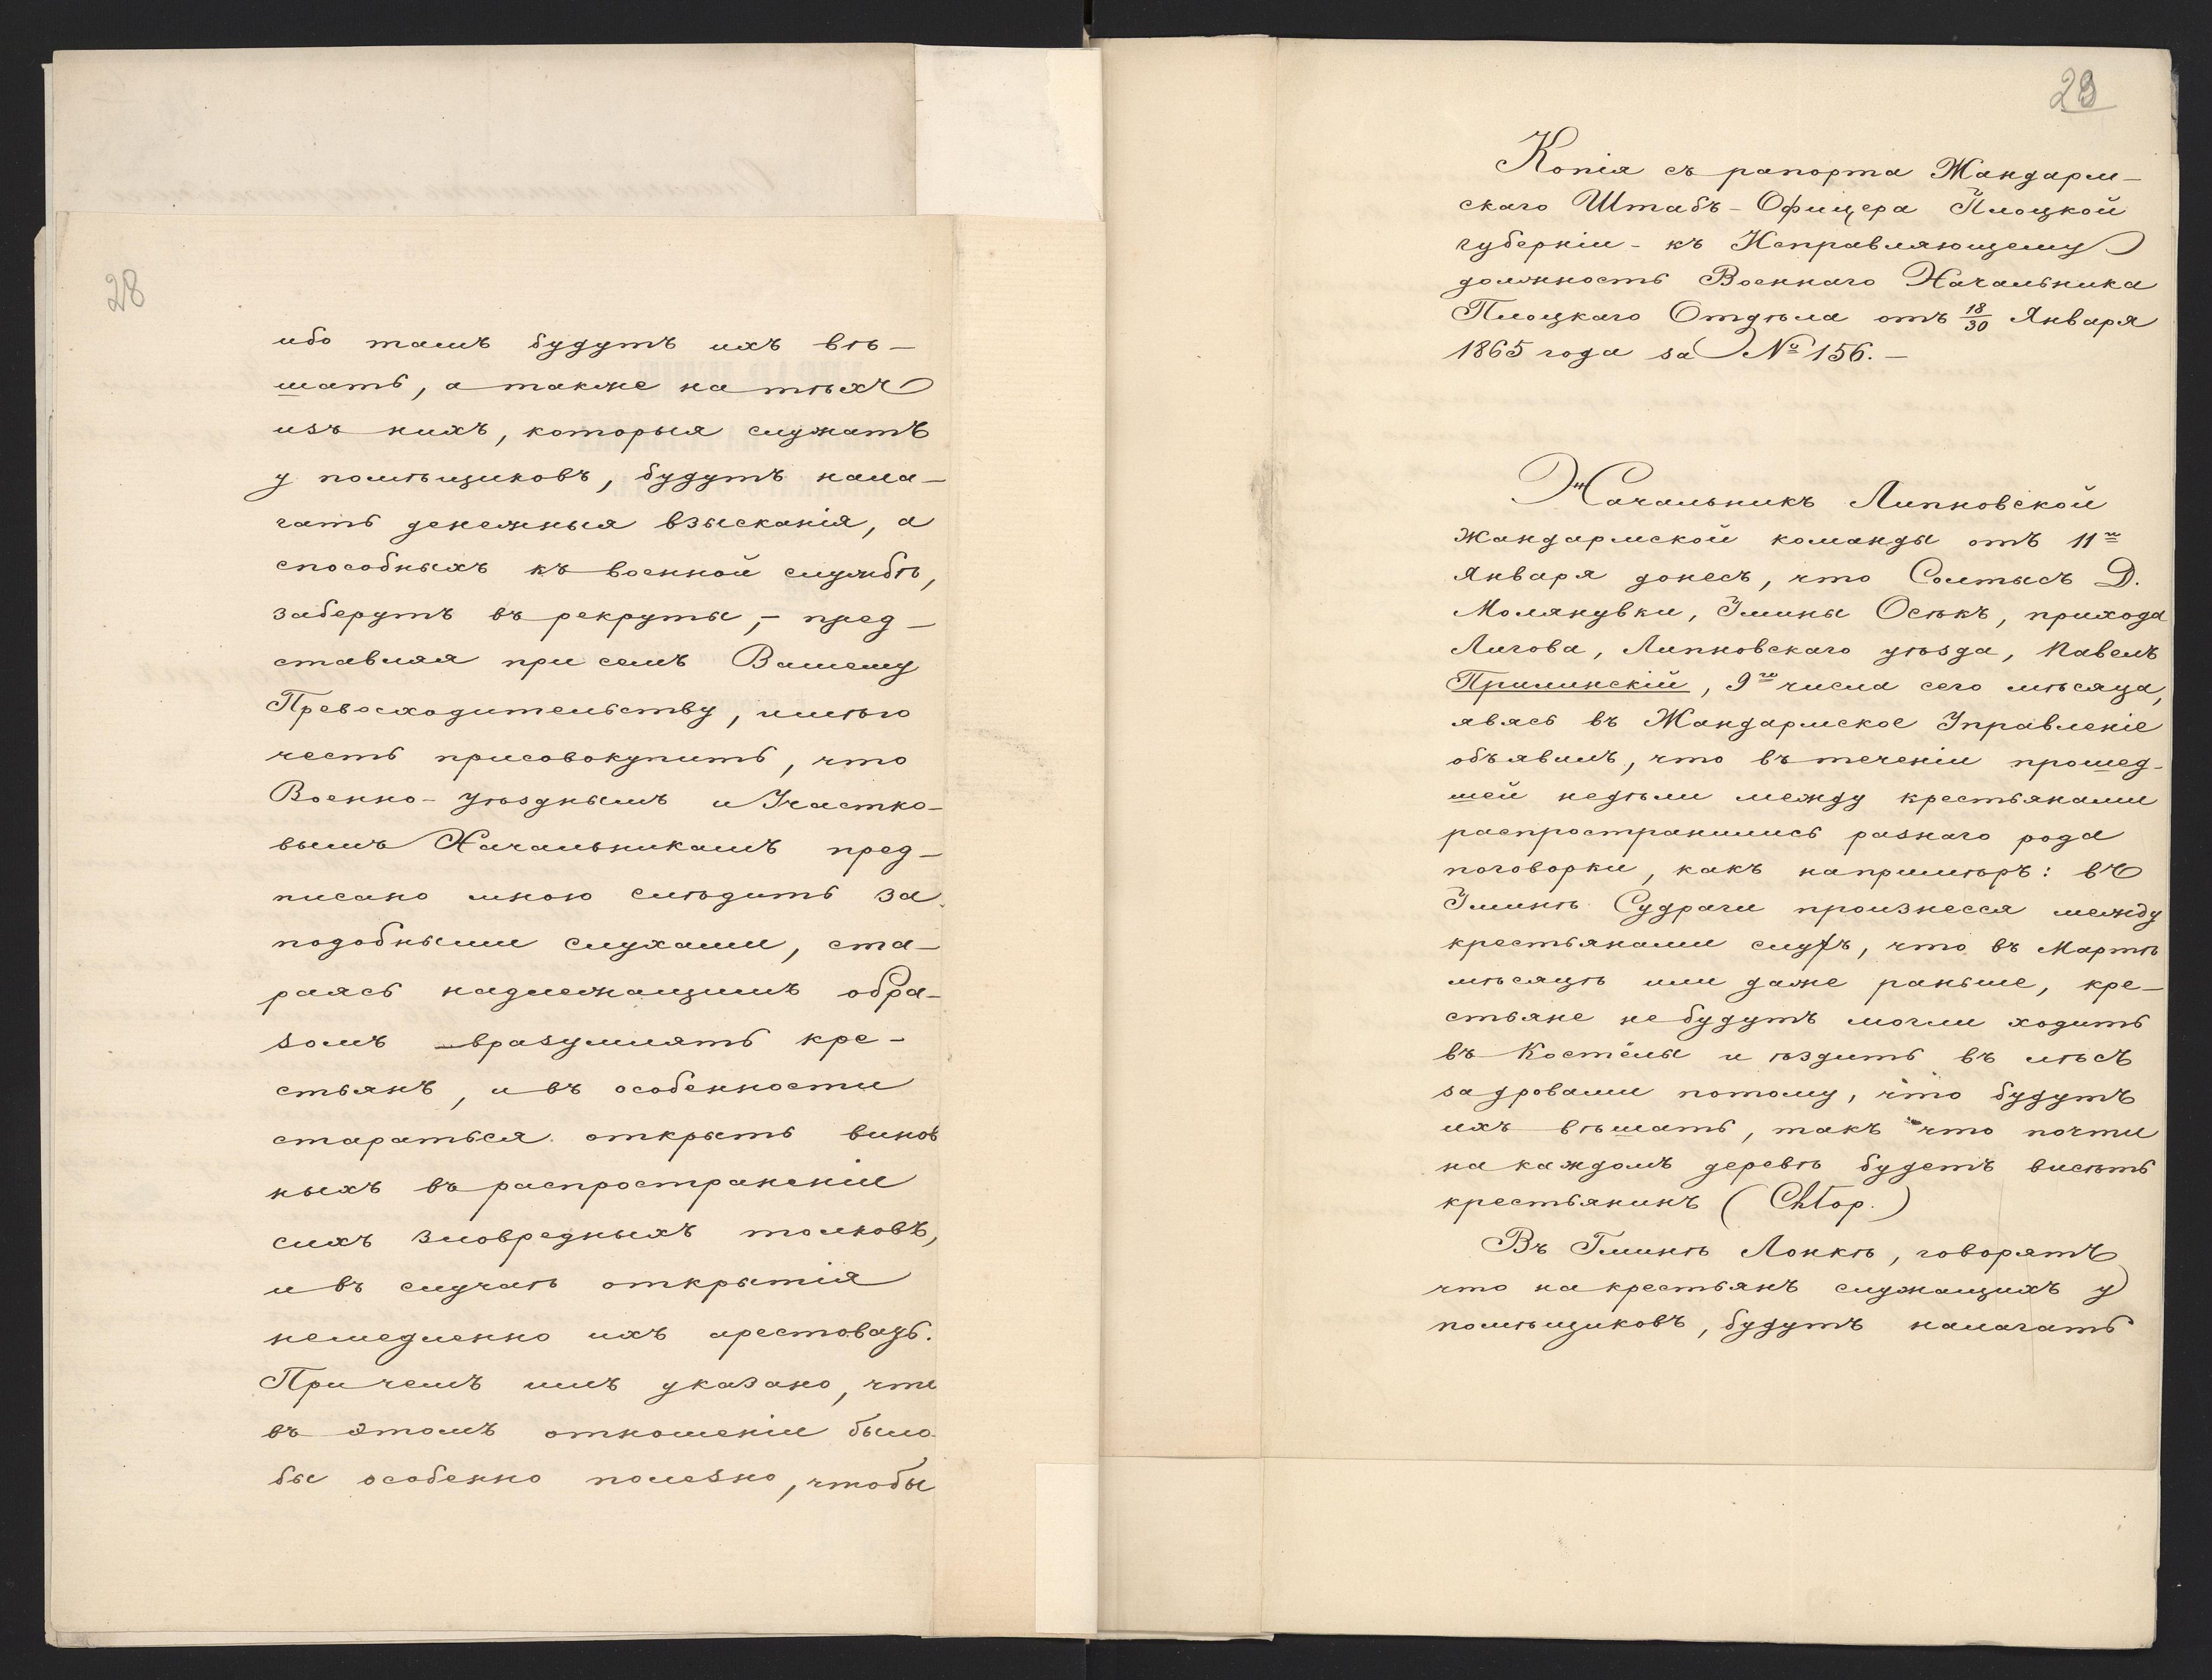 28
ибо тамъ будутъ ихъ вѣ-
шать, а также на тѣхъ
изъ нихъ, которыя служатъ
у помѣщиковъ, будутъ нала-
гать денежныя взысканія, а
способныхъ къ военной службѣ,
заберутъ въ рекруты, - пред-
ставляя при семъ Вашему
Превосходительству, имѣю
честь присовокупить, что
Военно-Уѣзднымъ и Участко-
вымъ Начальникамъ пред-
писано мною слѣдить за
подобными слухами, ста-
раясь надлежащимъ обра-
зомъ вразумлять кре-
стьянъ, и въ особенности
стараться открыть винов
ныхъ въ распространеніи
сихъ зловредныхъ толковъ,
и въ случаѣ открытія
немедленно ихъ арестовать.
При чемъ имъ указано, что
въ этомъ отношеніи было
бы особенно полезно, чтобы
29
Копія съ рапорта Жандарм-
скаго Штабъ-Офицера Плоцкой
губерніи - къ Исправляющему
должность Военнаго Начальника
Плоцкаго Отдѣла отъ 18/30 Января
1865 года за № 156. -
Начальникъ Липновской
Жандармской команды отъ 11го
Января донесъ, что Солтысъ Д.
Молянувки, Гмины Осѣкъ, прихода
Лигова, Липновскаго уѣзда, Павелъ
Прилинскій, 9го числа сего мѣсяца,
явясь въ Жандармское Управленіе
объявилъ, что въ теченіи прошед-
шей недѣли между крестьянами
распространились разнаго рода
поговорки, какъ напримѣръ: въ
Гминѣ Судраги произнесся между
крестьянами слухъ, что въ Мартѣ
мѣсяцѣ или даже раньше, кре-
стьяне не будутъ могли ходить
въ Костёлы и ѣздить въ лѣсъ
за дровами потому, что будутъ
ихъ вѣшать, такъ что почти
на каждомъ деревѣ будетъ висѣть
крестьянинъ (Chłop.)
Въ Гминѣ Лонкѣ, говорятъ
что на крестьянъ служащихъ у
помѣщиковъ, будутъ налагать